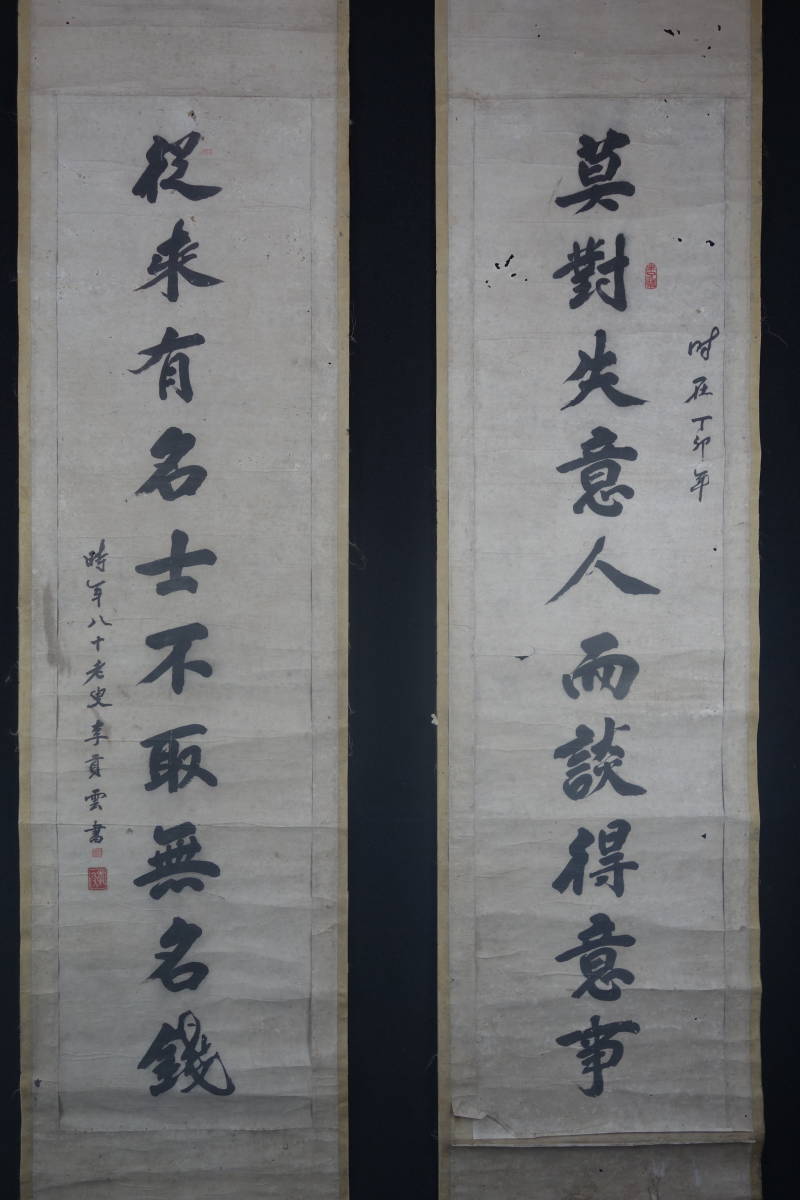 時在丁卯年
莫對失意人而談得意事
從來有名士不取無名錢
時年八十老叟李貢雲書